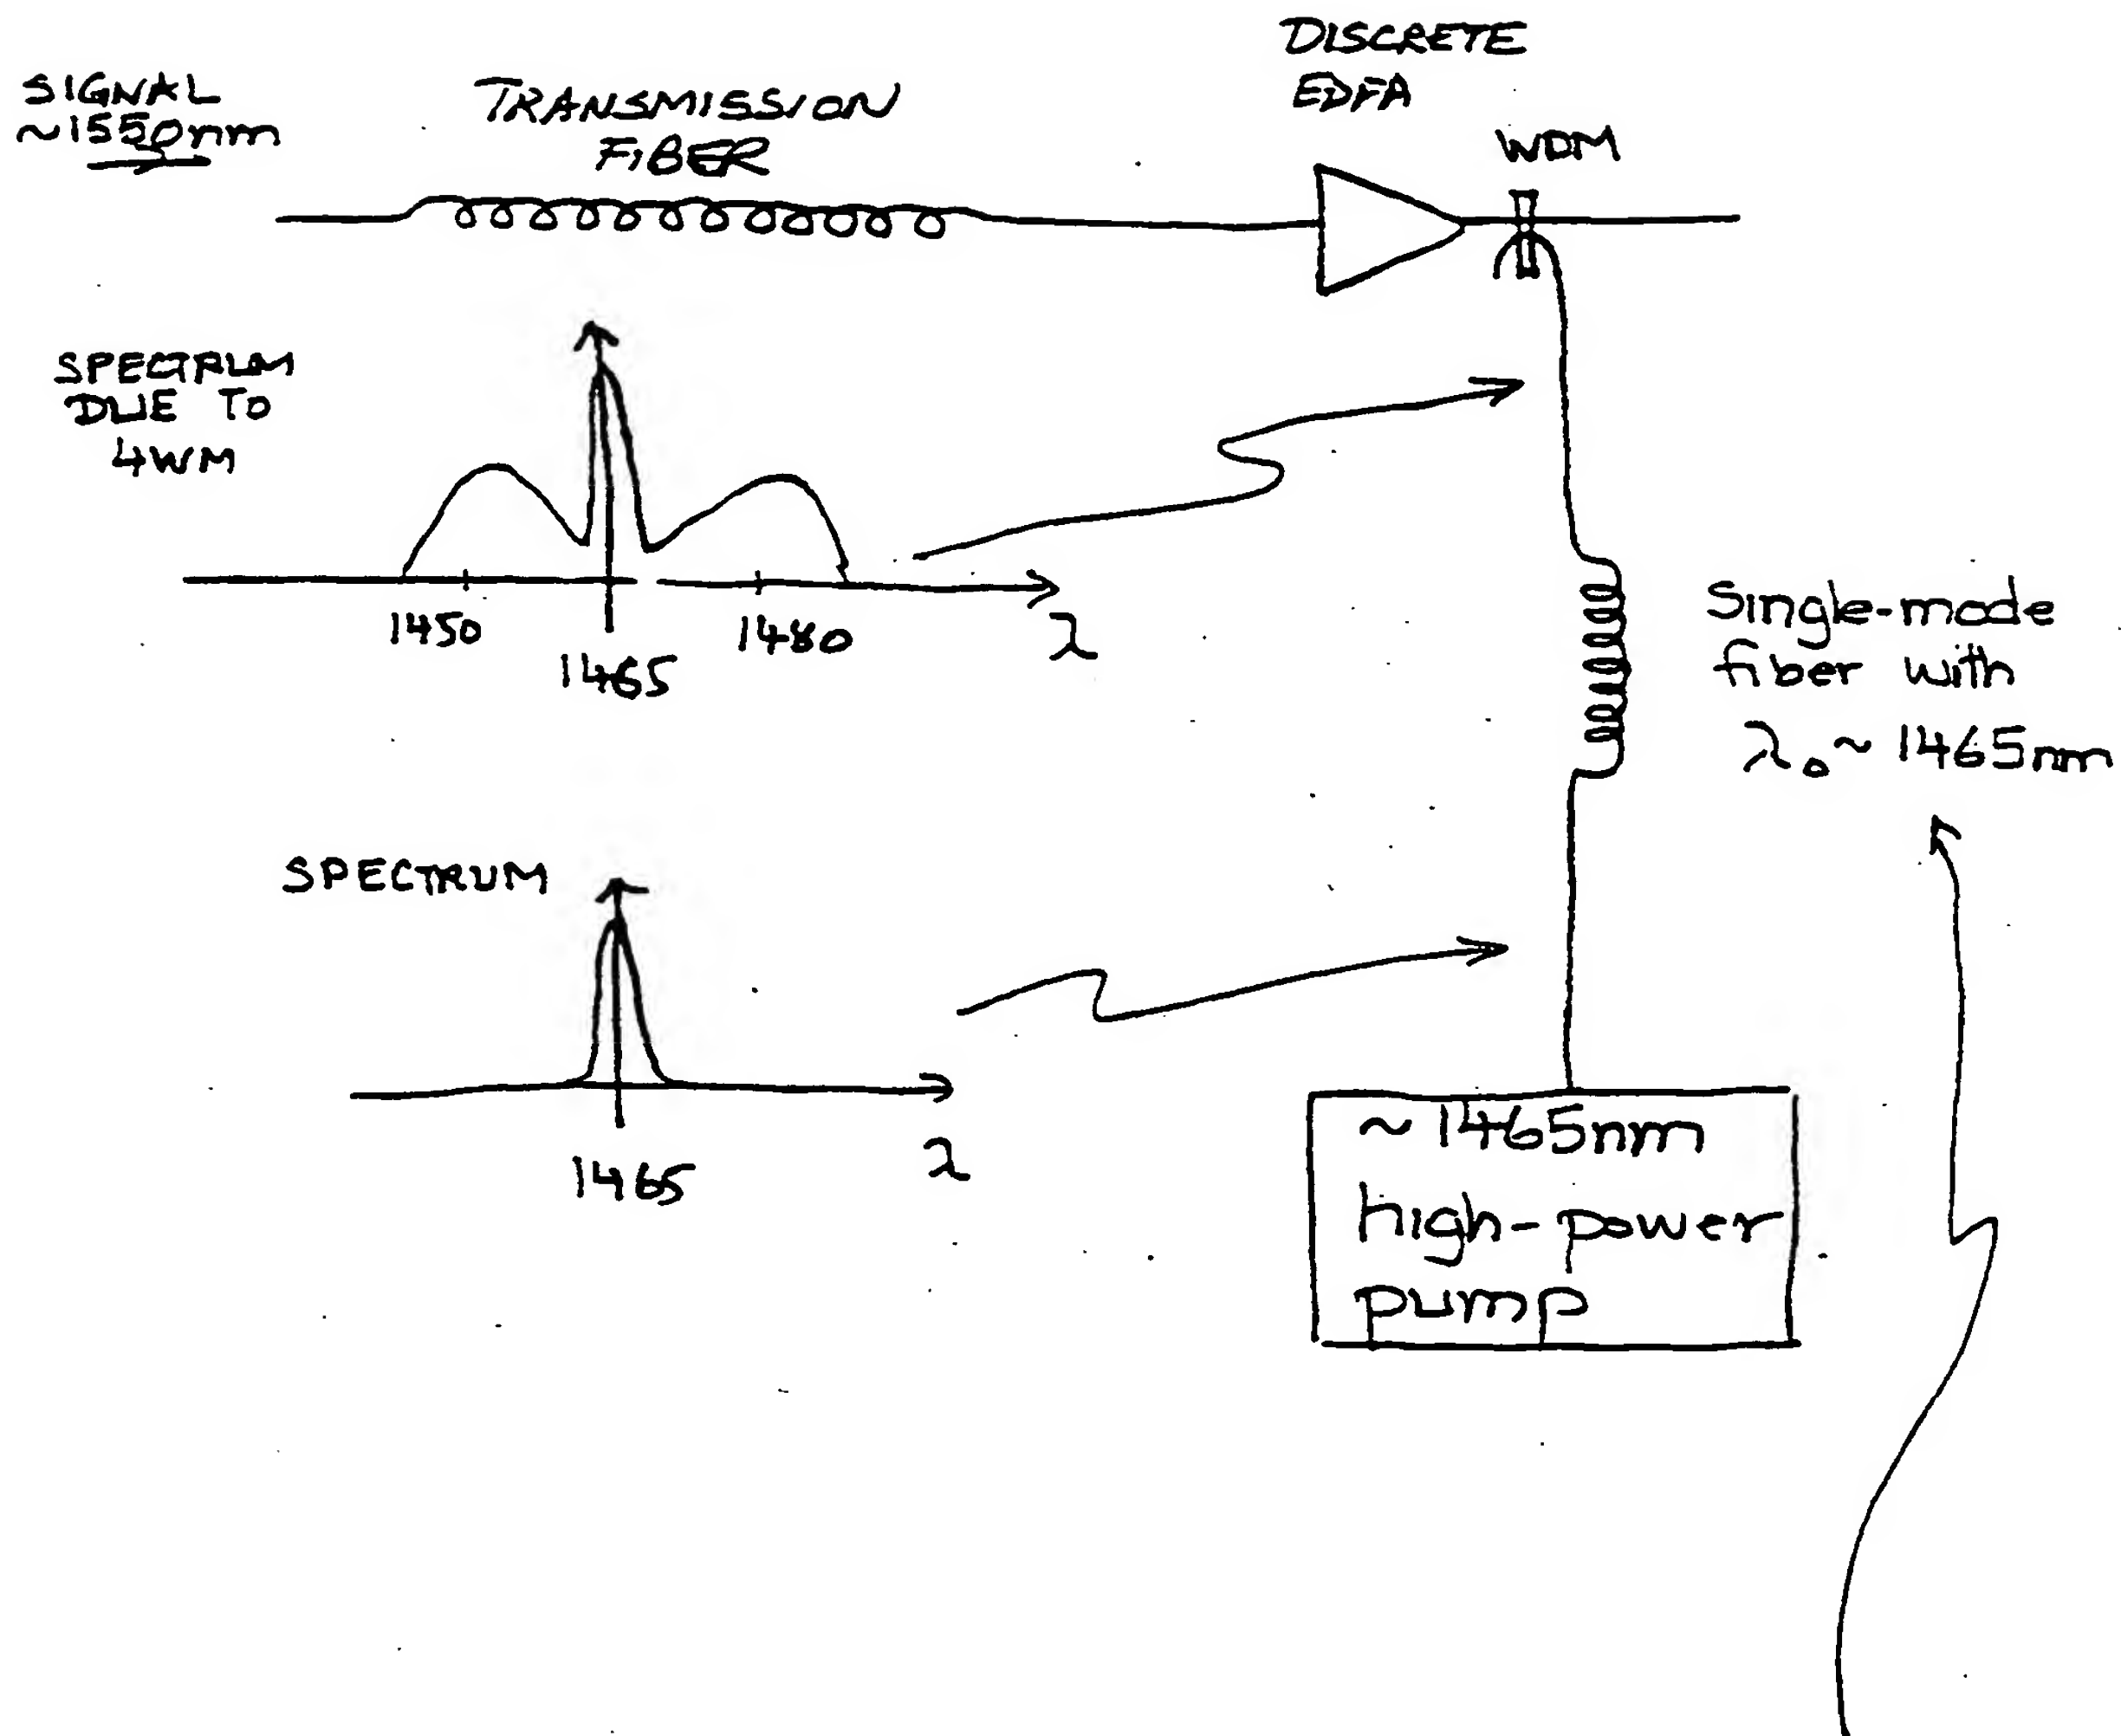 SIGNAL
~1550nm
TRANSMISSION
FIBER
DISCRETE
EDFA
WDM
SPECTRUM
DUE TO
4WM
1450
1465
1480
λ
Single-mode
fiber with
λ₀ ~ 1465nm
SPECTRUM
1465
λ
~1465nm
high-power
pump